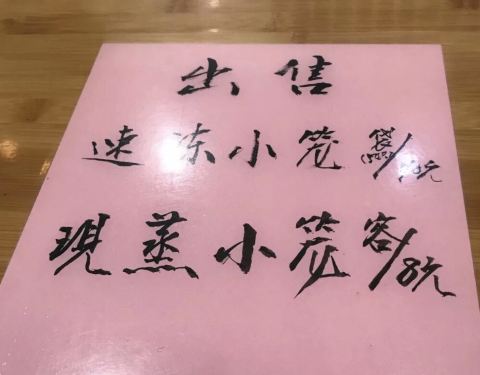 出售
速冻小笼袋/18元
現蒸小笼客/8元